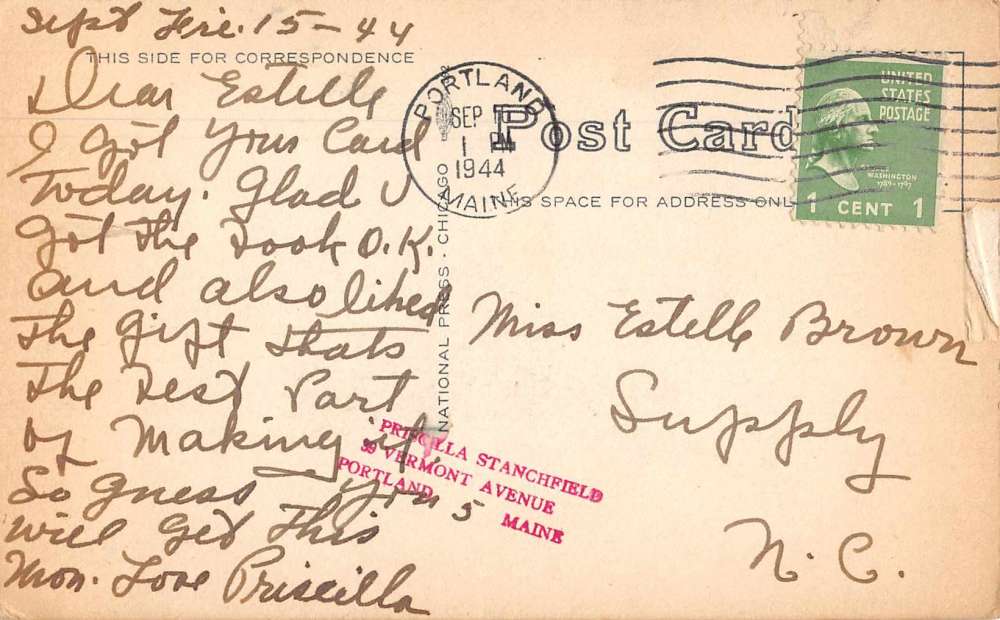 Sept Fri. 15 - 44
THIS SIDE FOR CORRESPONDENCE
Dear Estelle
I got your Card
Today. Glad U
got the Book O.K.
and also liked
the gift thats
the Best Part
of Making it.
So guess you
will get this
Mon. Love Priscilla
NATIONAL PRESS - CHICAGO
PORTLAND
SEP
1 PM
1944
MAINE
Post Card
THIS SPACE FOR ADDRESS ONLY
UNITED
STATES
POSTAGE
WASHINGTON
1789-1797
1 CENT 1
Miss Estelle Brown
Supply
N.C.
PRISCILLA STANCHFIELD
39 VERMONT AVENUE
PORTLAND 5 MAINE